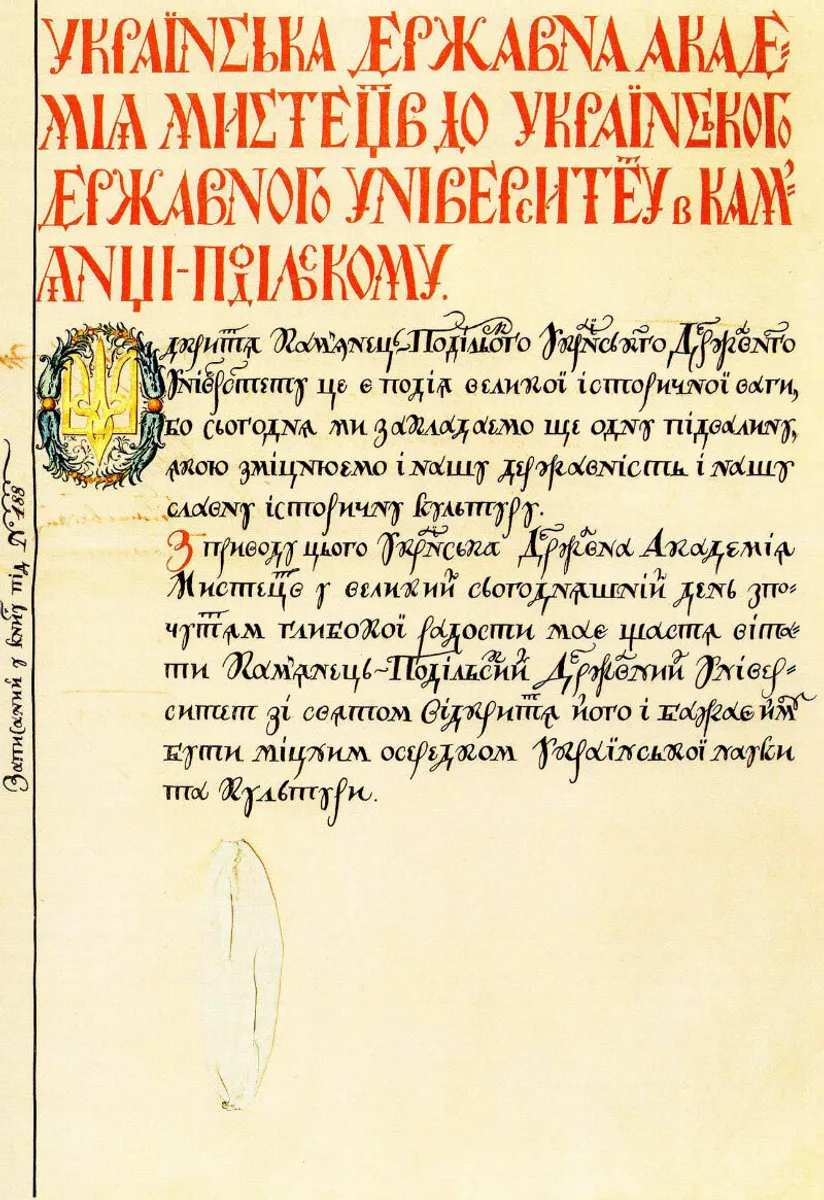 УКРАЇНСЬКА ДЕРЖАВНА АКАДЕ=
МІЯ МИСТЕЦТВ ДО УКРАЇНСЬКОГО
ДЕРЖАВНОГО УНІВЕРСИТЕТУ в КАМ'=
ЯНЦІ-ПОДІЛЬСЬКОМУ.
Відкриття Кам'янець-Подільського Українського Державного
Університету це є подія великої історичної ваги,
бо сьогодня ми закладаємо ще одну підвалину,
якою зміцнюємо і нашу державність і нашу
славну історичну культуру.
З приводу цього Українська Державна Академія
Мистецтв у великий сьогодняшній день зпо=
чуттям глибокої радости має щастя віта=
ти Кам'янець-Подільський Державний Універ=
ситет зі святом відкриття його і бажає йому
бути міцним осередком Української науки
та Культури.
Записаний у книгу під №188